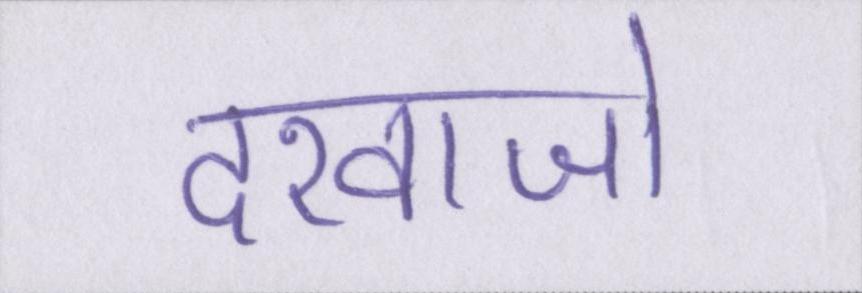 दरवाजो